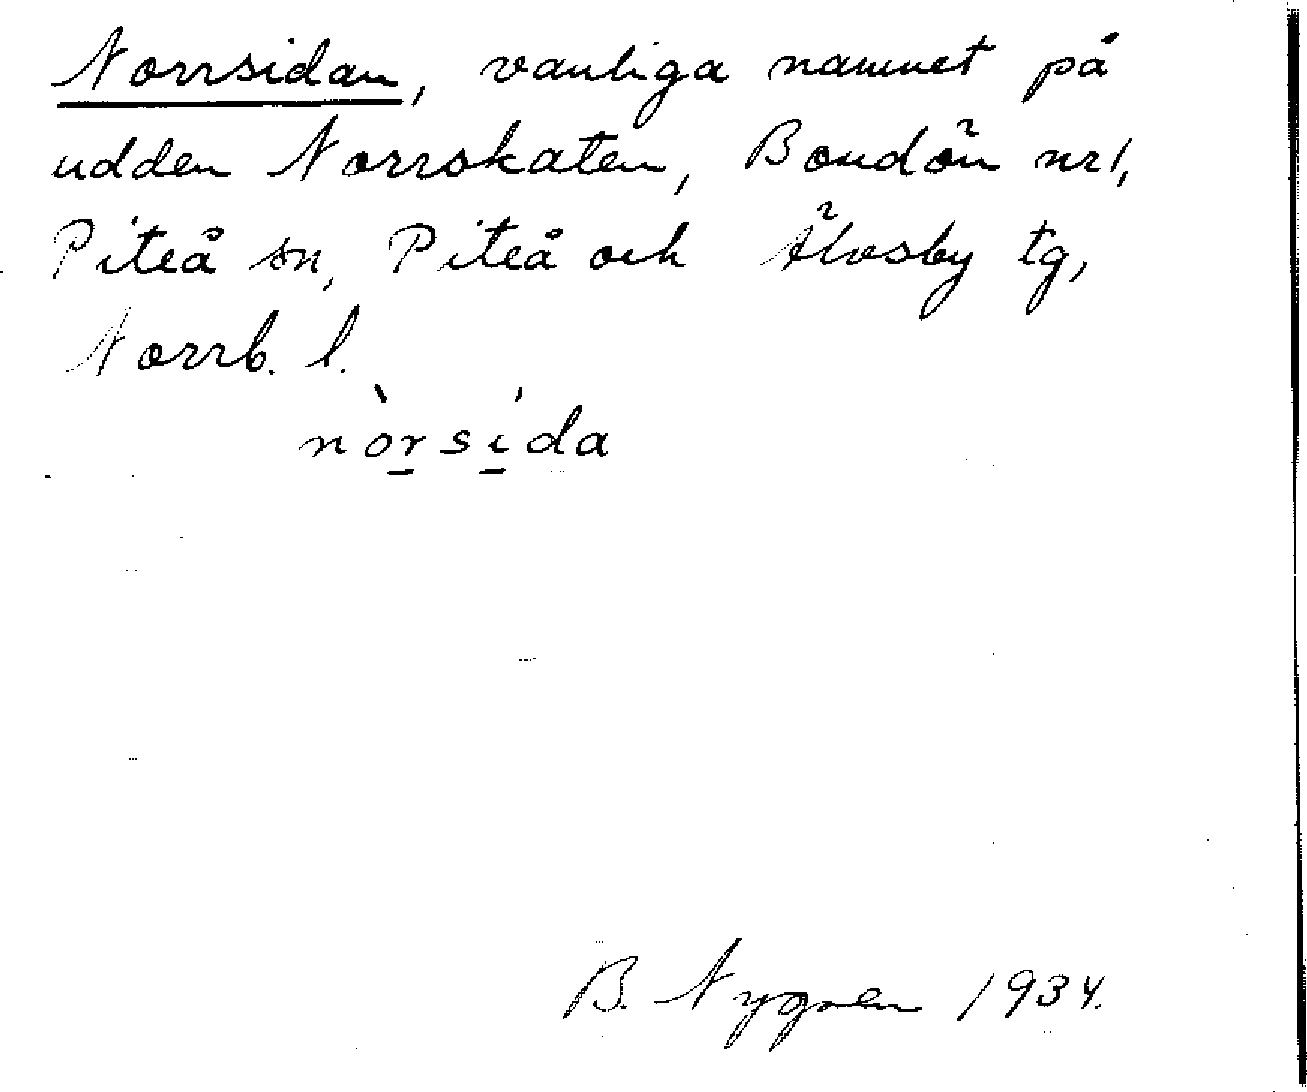 Norrsidan, vanliga namnet på
udden Norrskaten, Bondön nr 1,
Piteå sn, Piteå och Älvsby tg,
Norrb. l.
nòrsída
B. Nygren 1934.